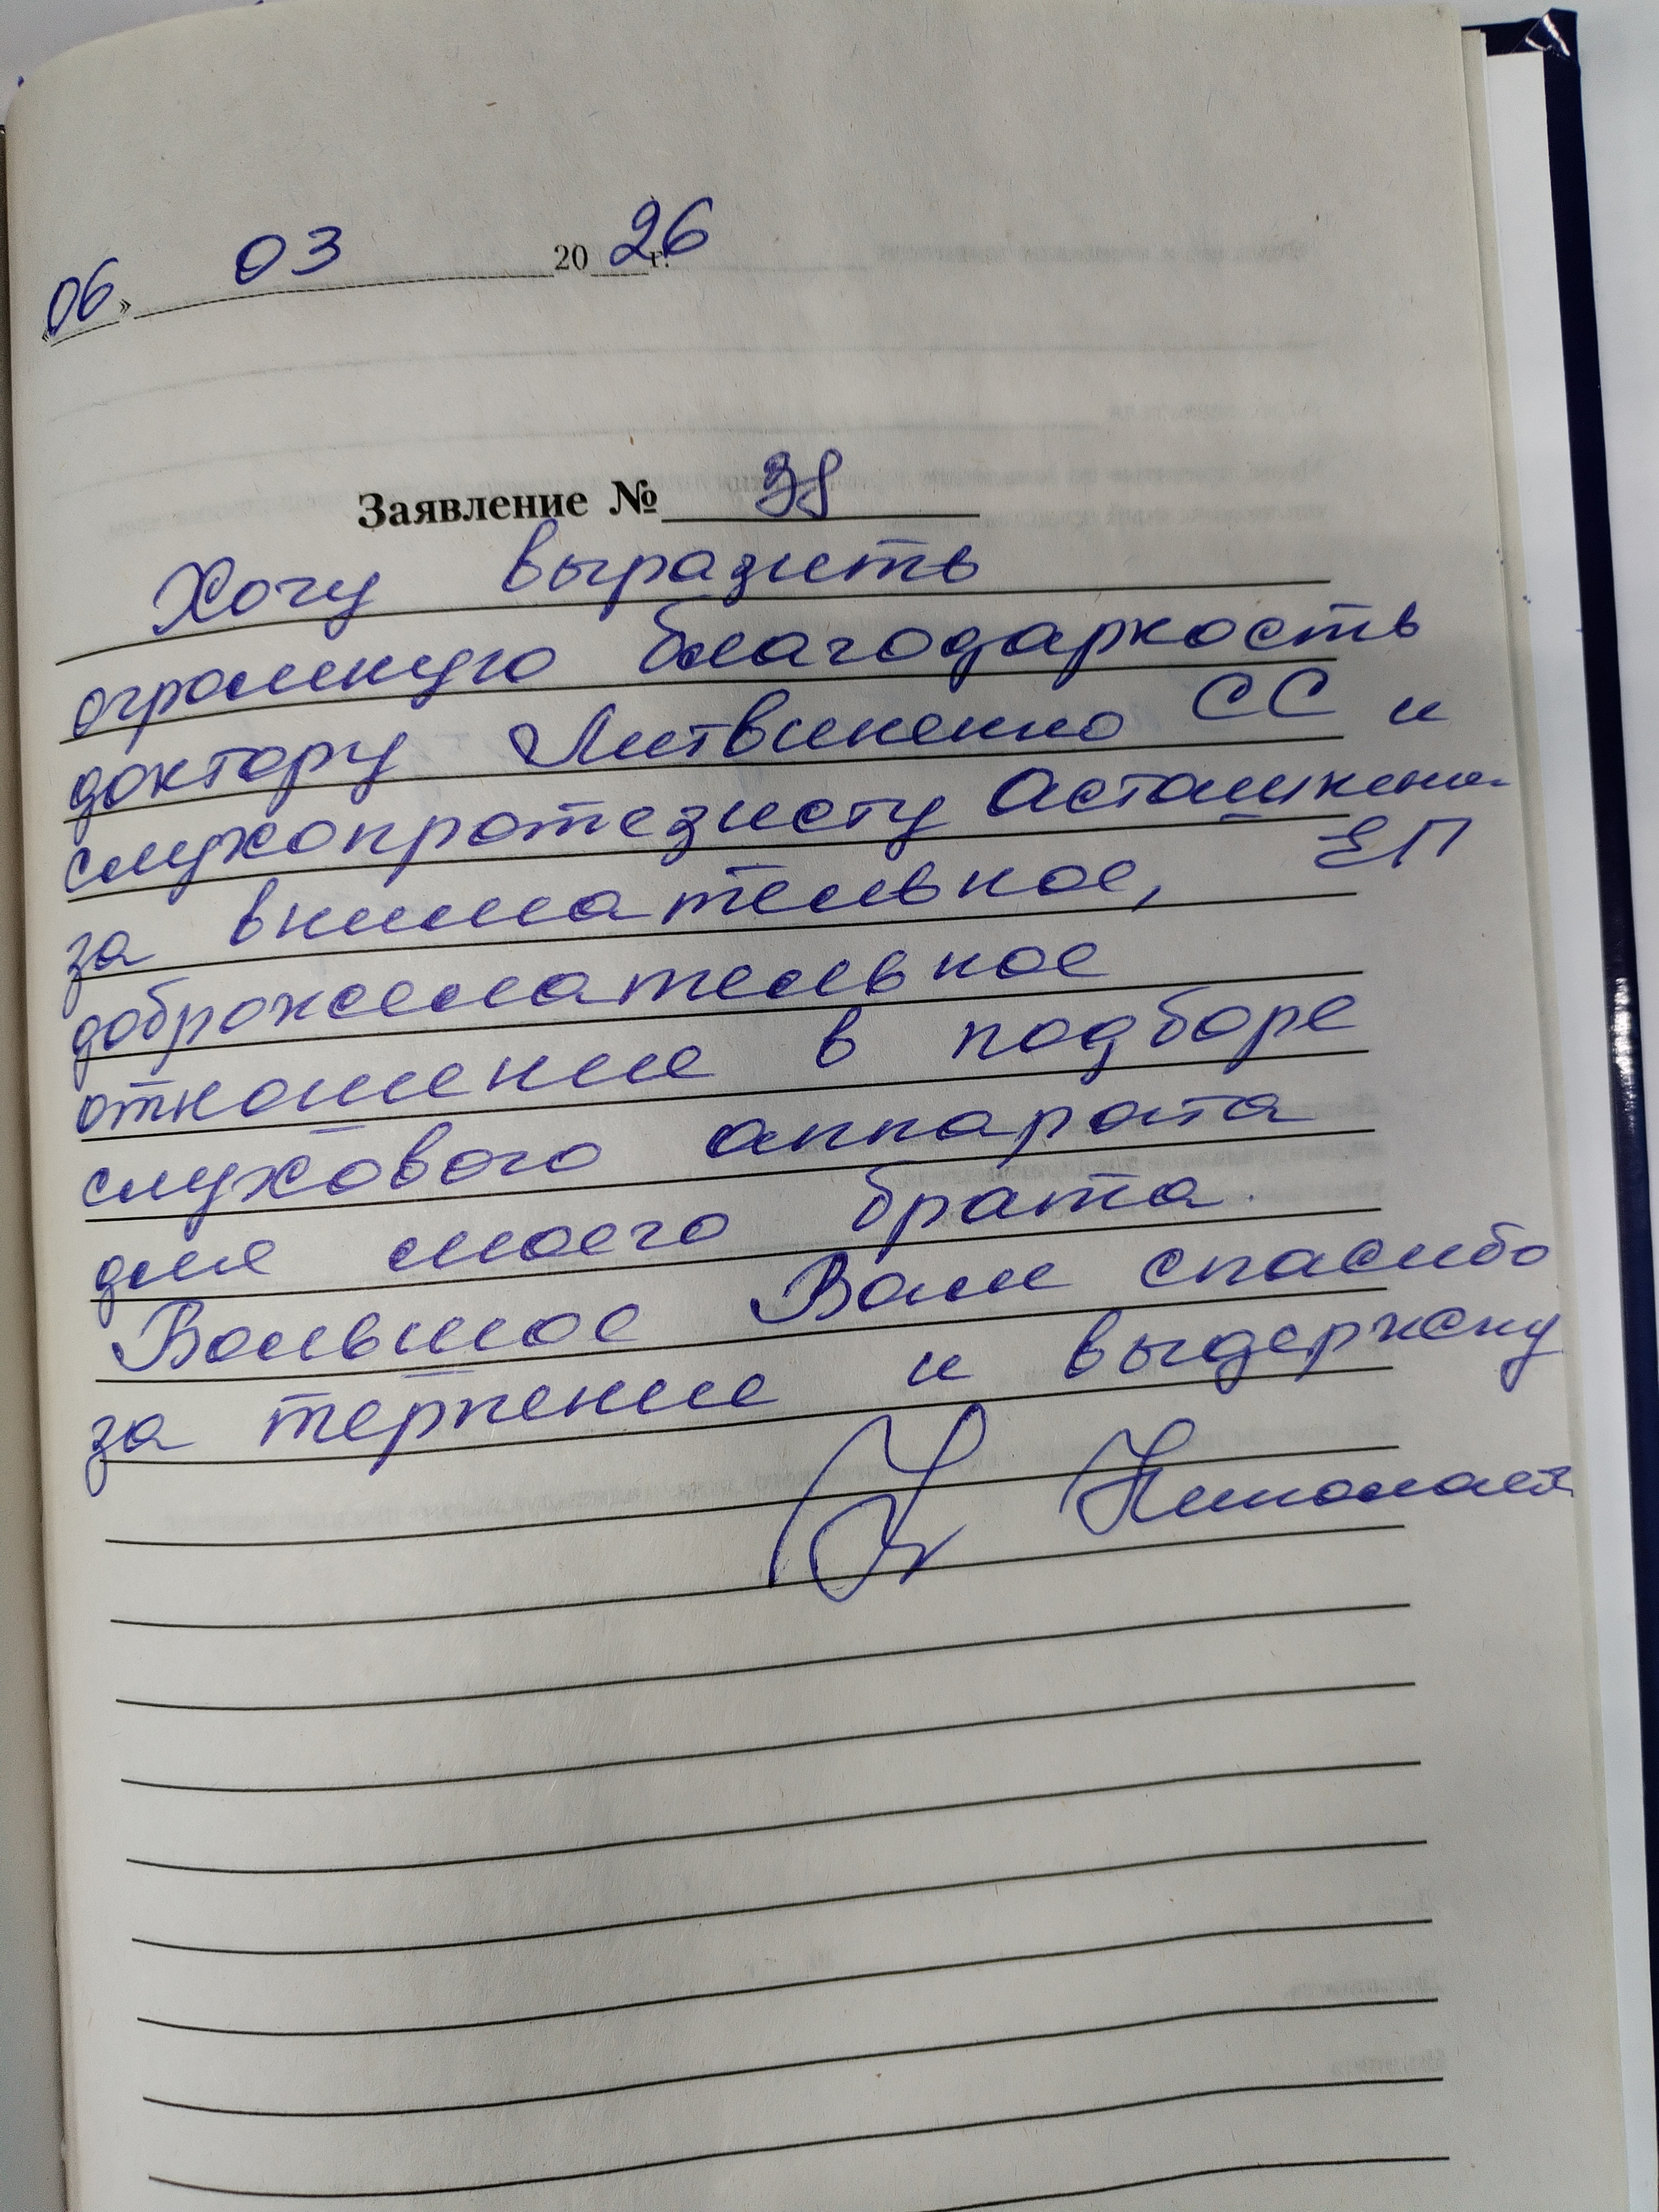 «06» 03 2026 г.
Заявление № 38
Хочу выразить
огромную благодарность
доктору Литвиненко СС и
слухопротезисту
за внимательное, ЕП
доброжелательное
отношение в подборе
слухового аппарата
для моего брата.
Большое Вам спасибо
за терпение и выдержку